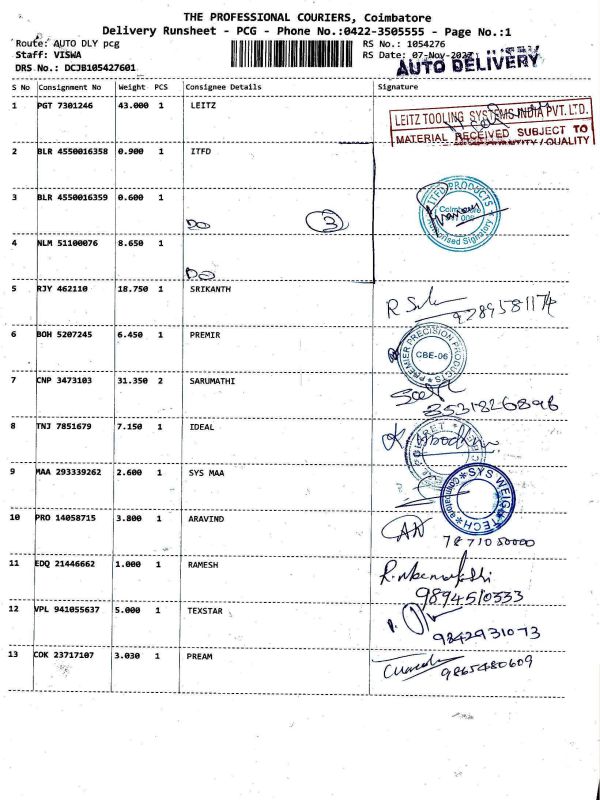 THE PROFESSIONAL COURIERS, Coimbatore
Delivery Runsheet - PCG - Phone No.:0422-3505555 - Page No.:1
Route: AUTO DLY pcg RS No.: 1054276
Staff: VISWA RS Date: 07-Nov-
DRS No.: DCJB105427601 AUTO DELIVERY
S No Consignment No Weight PCS Consignee Details Signature
1 PGT 7301246 43.000 1 LEITZ
LEITZ TOOLING SYSTEMS INDIA PVT. LTD.
MATERIAL RECEIVED SUBJECT TO
QUANTITY / QUALITY
2 BLR 4550016358 0.900 1 ITFD
3 BLR 4550016359 0.600 1
DO 3
ITFD PRODUCTS
Authorised Signatory
4 NLM 51100076 8.650 1
DO
5 RJY 462110 18.750 1 SRIKANTH
9289581174
6 BOH 5207245 6.450 1 PREMIR
PREMIER PRECISION PRODUCTS
CBE-06
7 CNP 3473103 31.350 2 SARUMATHI
8531826896
8 TNJ 7851679 7.150 1 IDEAL
9 MAA 293339262 2.600 1 SYS MAA
SYS WEIGH TECH
10 PRO 14058715 3.800 1 ARAVIND
7871050000
11 EDQ 21446662 1.000 1 RAMESH
9894510333
12 VPL 941055637 5.000 1 TEXSTAR
9842931073
13 COK 23717107 3.030 1 PREAM
9865480609